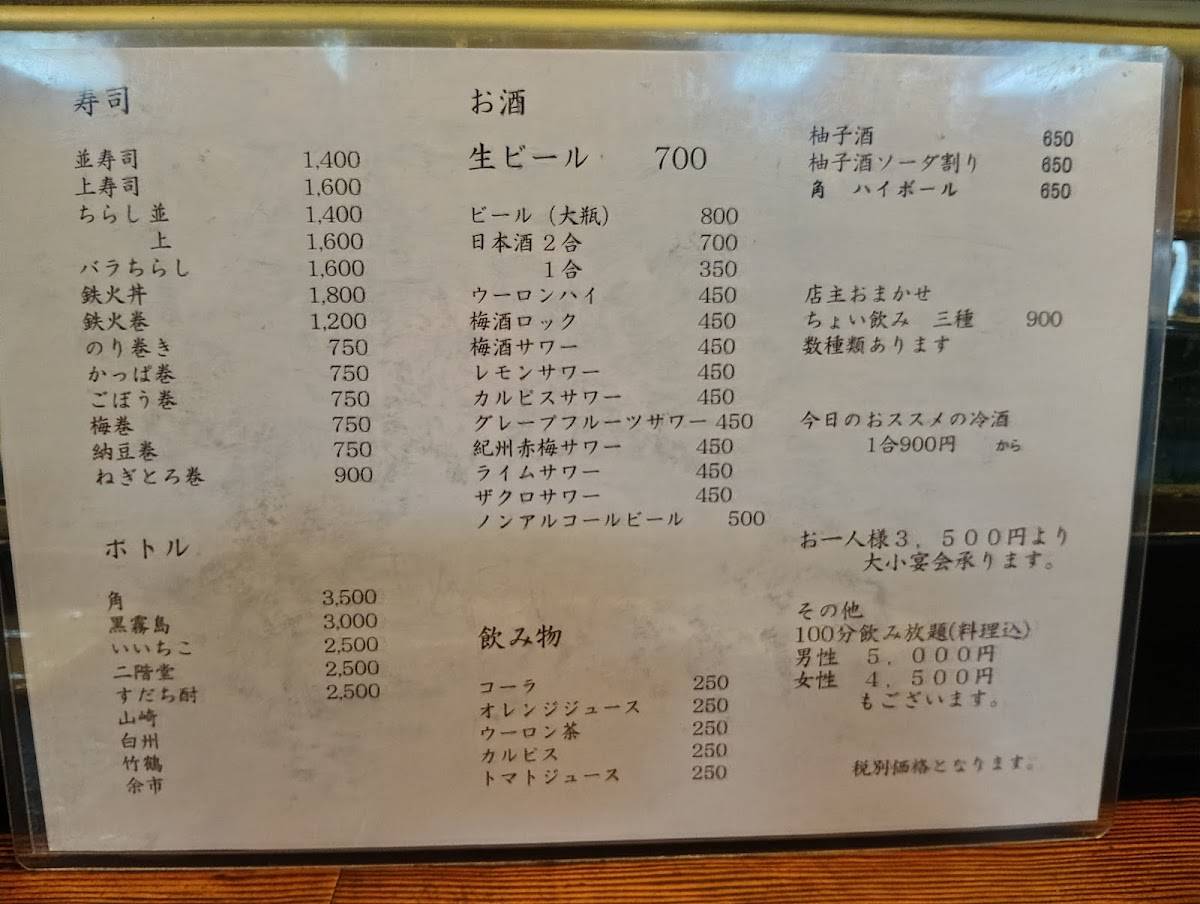 寿司
並寿司 1,400
上寿司 1,600
ちらし 並 1,400
上 1,600
バラちらし 1,600
鉄火丼 1,800
鉄火巻 1,200
のり巻き 750
かっぱ巻 750
ごぼう巻 750
梅巻 750
納豆巻 750
ねぎとろ巻 900
ボトル
角 3,500
黒霧島 3,000
いいちこ 2,500
二階堂 2,500
すだち酎 2,500
山崎
白州
竹鶴
余市
お酒
生ビール 700
ビール（大瓶） 800
日本酒２合 700
１合 350
ウーロンハイ 450
梅酒ロック 450
梅酒サワー 450
レモンサワー 450
カルピスサワー 450
グレープフルーツサワー 450
紀州赤梅サワー 450
ライムサワー 450
ザクロサワー 450
ノンアルコールビール 500
飲み物
コーラ 250
オレンジジュース 250
ウーロン茶 250
カルピス 250
トマトジュース 250
柚子酒 650
柚子酒ソーダ割り 650
角 ハイボール 650
店主おまかせ
ちょい飲み 三種 900
数種類あります
今日のおススメの冷酒
1合900円 から
お一人様３，５００円より
大小宴会承ります。
その他
100分飲み放題(料理込)
男性 ５，０００円
女性 ４，５００円
もございます。
税別価格となります。